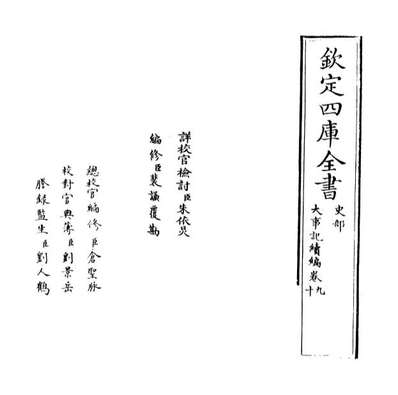 欽定四庫全書
史部
大事記續編卷九十
詳校官檢討臣朱依炅
編修臣裴謙覆勘
總校官編修臣倉聖脉
校對官典簿臣劉景岳
謄錄監生臣劉人鶴